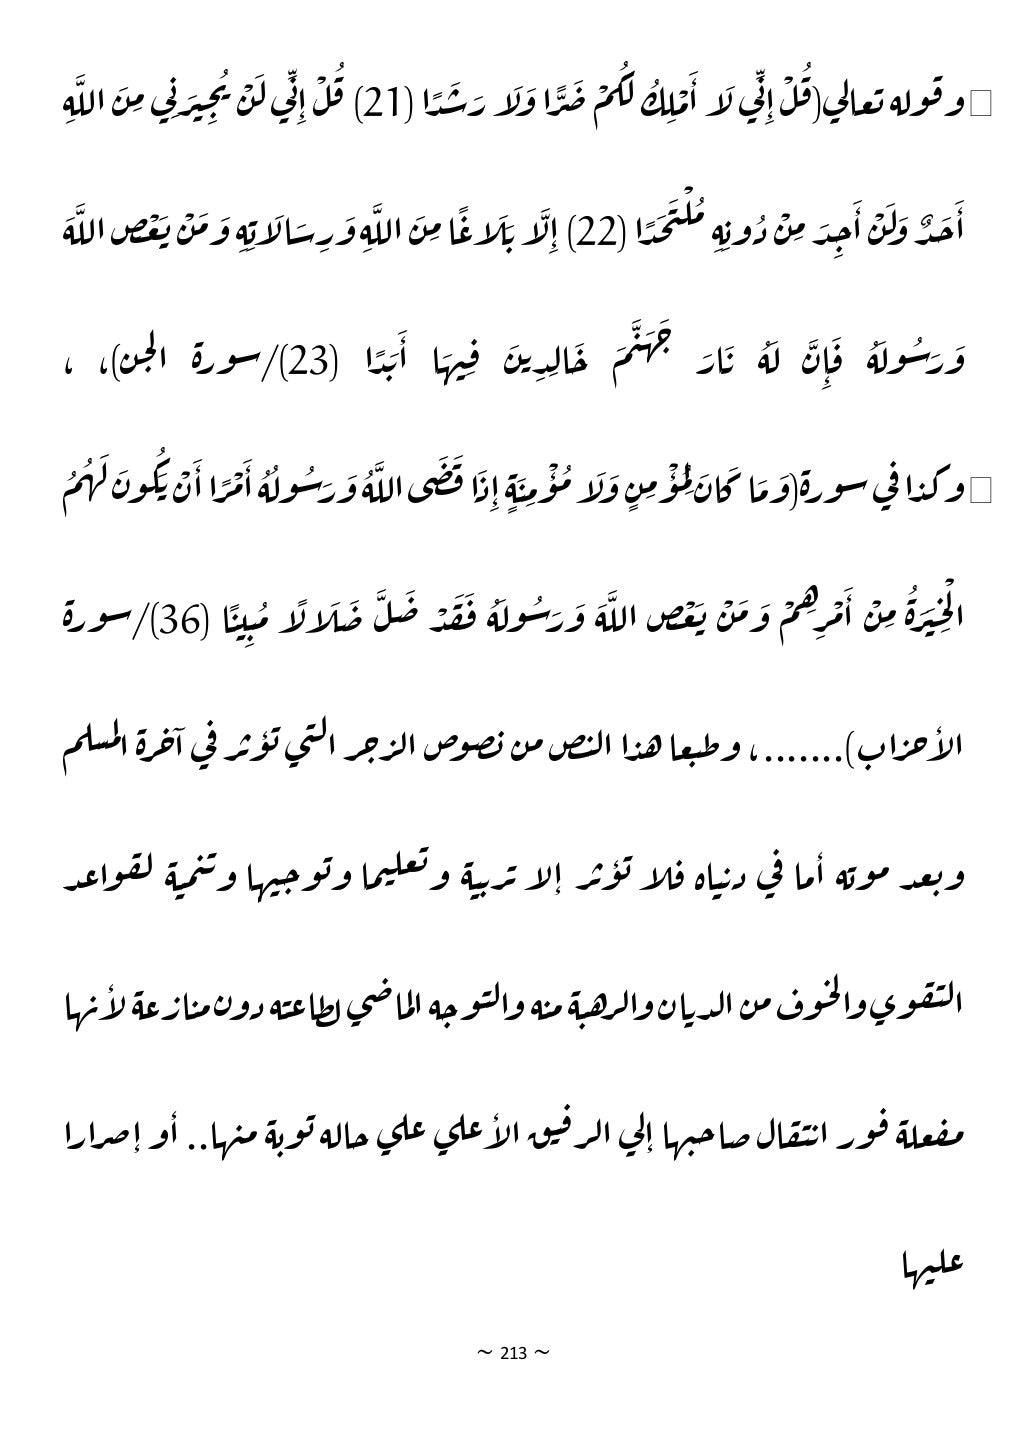 وقوله تعالي(قُلْ إِنِّي لَا أَمْلِكُ لَكُمْ ضَرًّا وَلَا رَشَدًا (21) قُلْ إِنِّي لَنْ يُجِيرَنِي مِنَ اللَّهِ
أَحَدٌ وَلَنْ أَجِدَ مِنْ دُونِهِ مُلْتَحَدًا (22) إِلَّا بَلَاغًا مِنَ اللَّهِ وَرِسَالَاتِهِ وَمَنْ يَعْصِ اللَّهَ
وَرَسُولَهُ فَإِنَّ لَهُ نَارَ جَهَنَّمَ خَالِدِينَ فِيهَا أَبَدًا (23)/سورة الجن)، ،
وكذا في سورة(وَمَا كَانَ لِمُؤْمِنٍ وَلَا مُؤْمِنَةٍ إِذَا قَضَى اللَّهُ وَرَسُولُهُ أَمْرًا أَنْ يَكُونَ لَهُمُ
الْخِيَرَةُ مِنْ أَمْرِهِمْ وَمَنْ يَعْصِ اللَّهَ وَرَسُولَهُ فَقَدْ ضَلَّ ضَلَالًا مُبِينًا (36)/سورة
الأحزاب).......، وطبعا هذا النص من نصوص الزجر التي تؤثر في آخرة المسلم
وبعد موته أما في دنياه فلا تؤثر إلا تربية وتعليما وتوجيها وتنمية لقواعد
التقوي والخوف من الديان والرهبة منه والتوجه الماضي لطاعته دون منازعة لأنها
مفعلة فور انتقال صاحبها إلي الرفيق الأعلي علي حاله توبة منها.. أو إصرارا
عليها
~ 213 ~